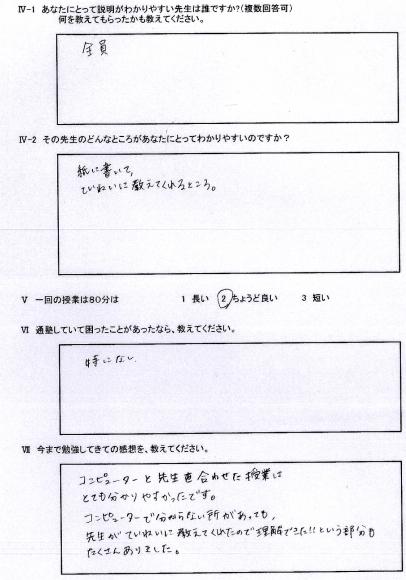 Ⅳ-1 あなたにとって説明がわかりやすい先生は誰ですか?(複数回答可)
何を教えてもらったかも教えてください。
全員
Ⅳ-2 その先生のどんなところがあなたにとってわかりやすいのですか?
紙に書いて、
ていねいに教えてくれるところ。
Ⅴ 一回の授業は80分は 1 長い 2 ちょうど良い 3 短い
Ⅵ 通塾していて困ったことがあったなら、教えてください。
特にない
Ⅶ 今まで勉強してきての感想を、教えてください。
コンピューターと先生を合わせた授業は
とても分かりやすかったです。
コンピューターで分からない所があっても、
先生がていねいに教えてくれたので理解できた!!という部分も
たくさんありました。